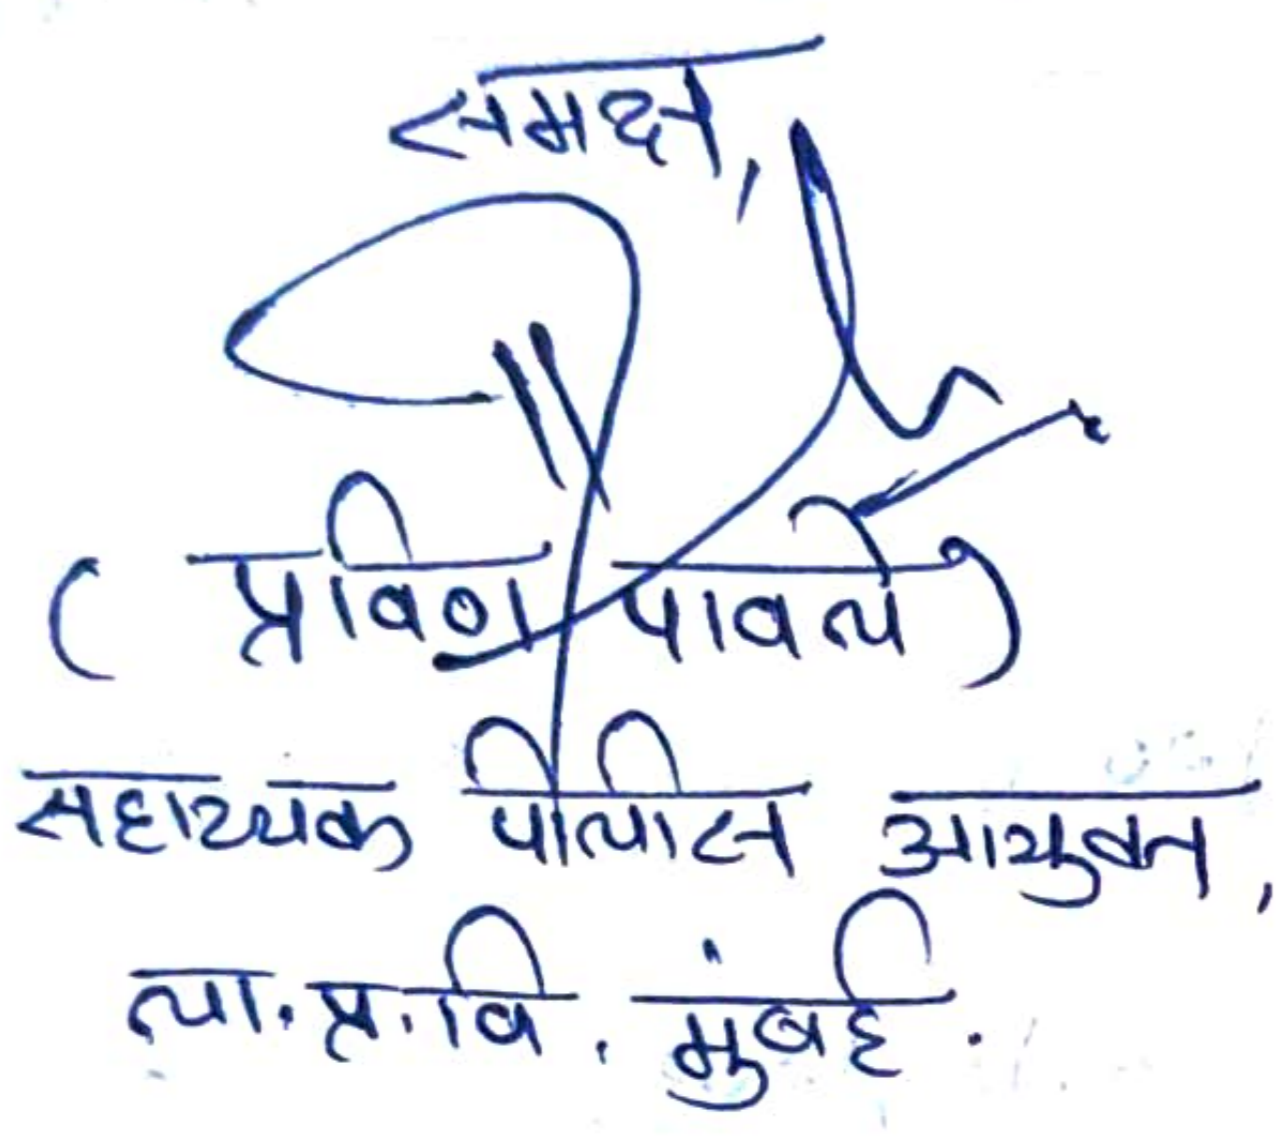 समक्ष,
( प्रविण पावले )
सहाय्यक पोलीस आयुक्त,
ला.प्र.वि. मुंबई.